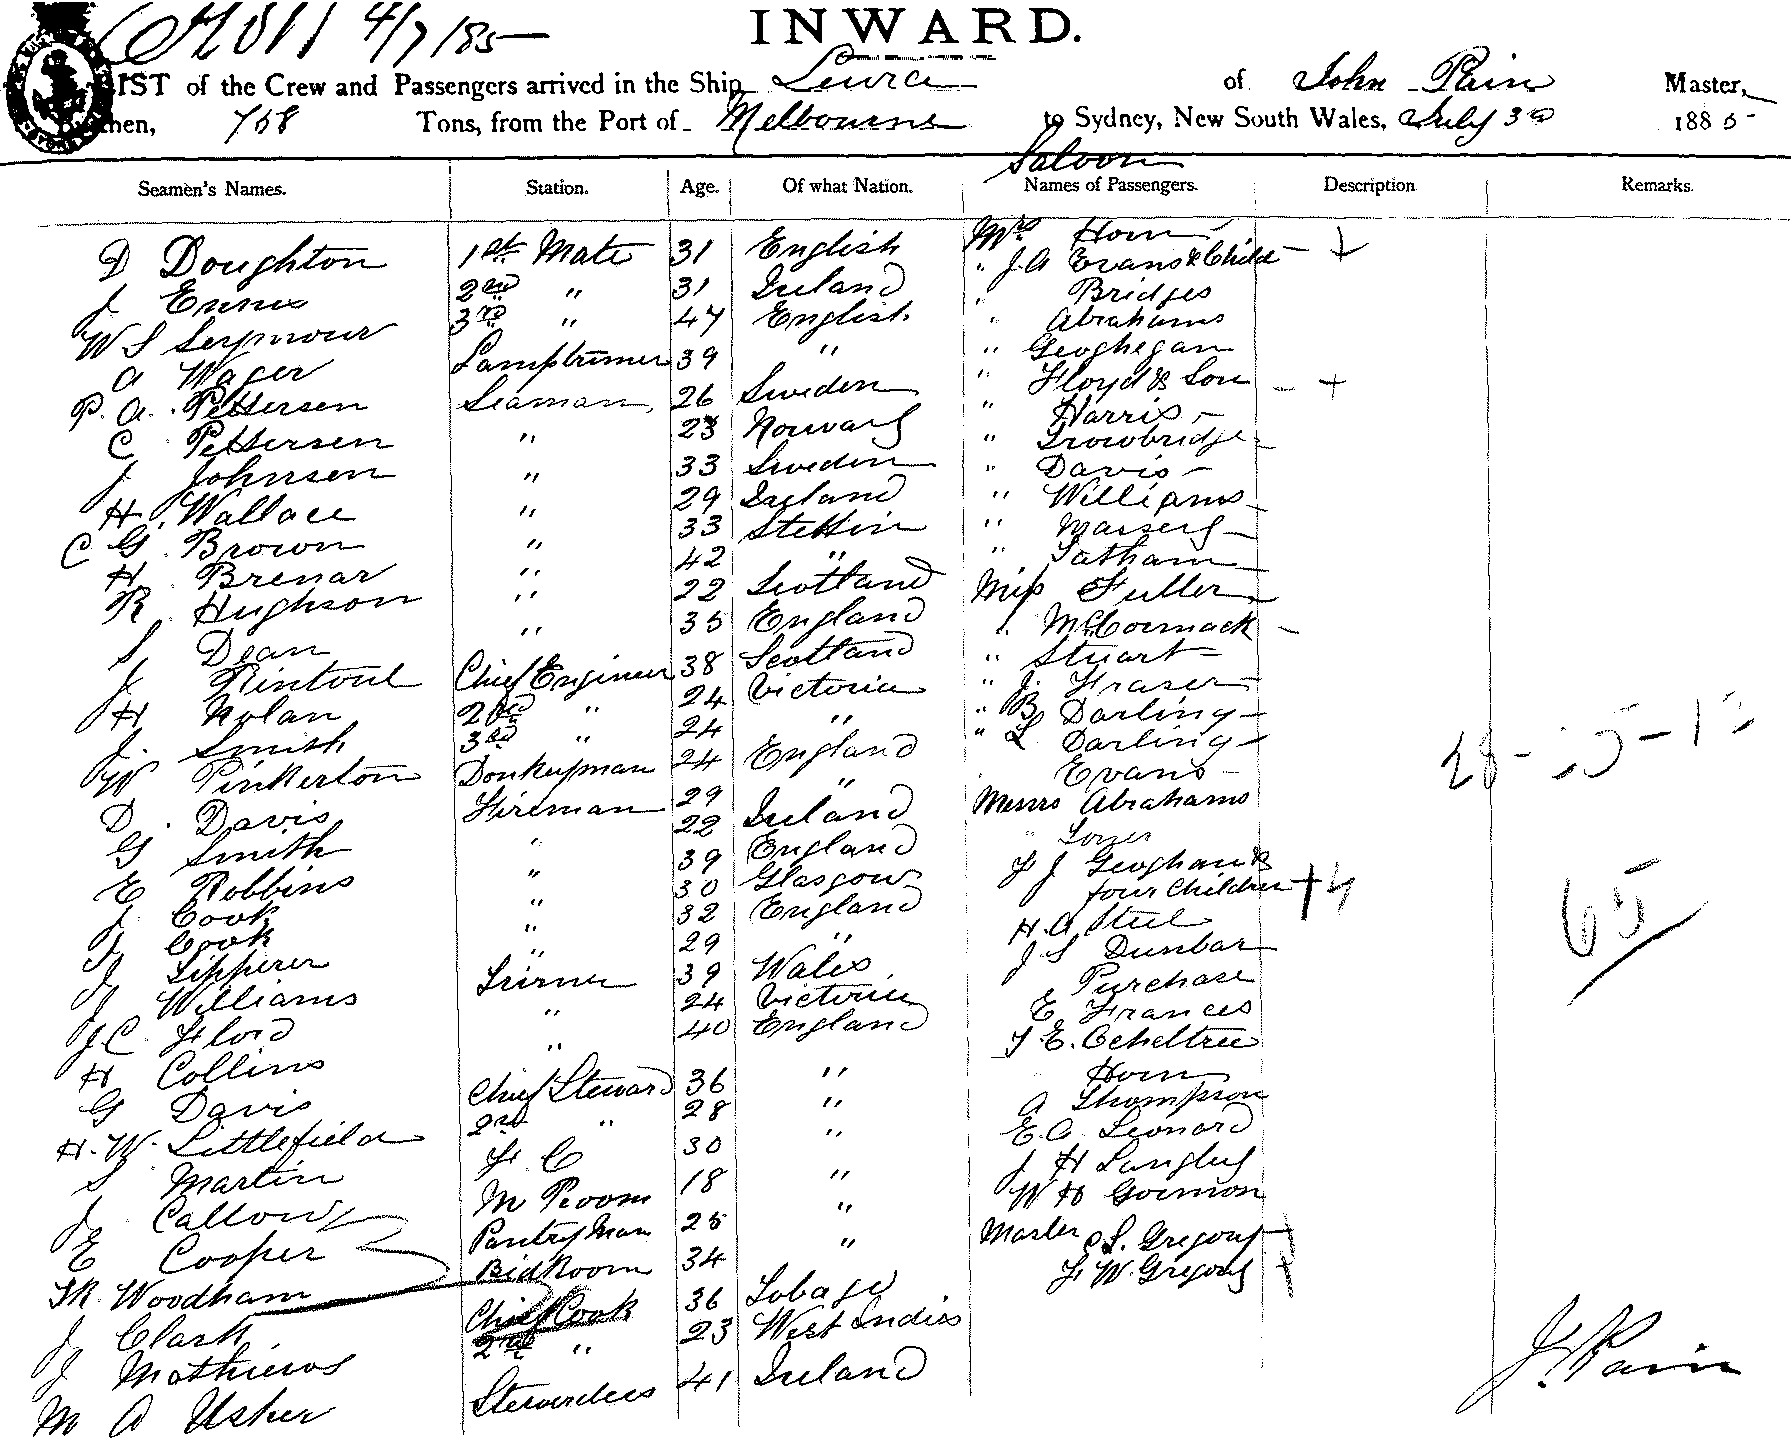 4/7/85
INWARD.
LIST of the Crew and Passengers arrived in the Ship Leura of John Pain Master,
Burthen, 758 Tons, from the Port of Melbourne to Sydney, New South Wales, July 3 1885
Saloon
Seamen's Names. Station. Age. Of what Nation. Names of Passengers. Description Remarks.
D Doughton 1st Mate 31 English
J Ennis 2nd " 31 Ireland
W S Seymour 3rd " 47 English
A Wager Lamptrimer 39 "
P. A. Pettersen Seaman 26 Sweden
C Pettersen " 23 Norway
J Johnsen " 33 Sweden
H Wallace " 29 Ireland
C G Brown " 33 Stettin
H Brenar " 42 "
R Hughson " 22 Scotland
S Dean " 35 England
J Rintoul Chief Engineer 38 Scotland
H Nolan 2nd " 24 Victoria
J. Smith 3rd " 24 "
W Pinkerton Donkeyman 24 England
D. Davis Fireman 29 "
G Smith " 22 Ireland
E Robbins " 39 England
J Cook " 30 Glasgow
J Cook " 32 England
J Lipperer " 29 "
J Williams Trimer 39 Wales
J C. Floid " 24 Victoria
H Collins " 40 England
G Davis Chief Steward 36 "
H. W. Littlefield 2nd " 28 "
S Martin F C 30 "
J Callow M Room 18 "
E Cooper Pantry Man 25 "
T R. Woodham Bedroom 34 "
J Clark Chief Cook 36 Tobago
J Mathiews 2nd " 23 West Indies
M A Usher Stewardess 41 Ireland
Mrs Horn
" J. A Evans & Child
" Bridges
" Abrahams
" Geoghegan
" Floyd & Son
" Harris
" Trowbridge
" Davis
" Williams
" Massey
" Tatham
Miss Fuller
" McCormack
" Stuart
" J. Fraser
" B Darling
" L Darling
Evans
Messrs Abrahams
F J Geoghan &
four children
H. A Steel
J S Dunbar
Purchase
E Frances
T E. Ocheltree
Horn
A Thompson
E. A. Leonard
J H Langley
W H Gormon
Master S. Gregory
F. W. Gregory
65
J. Pain